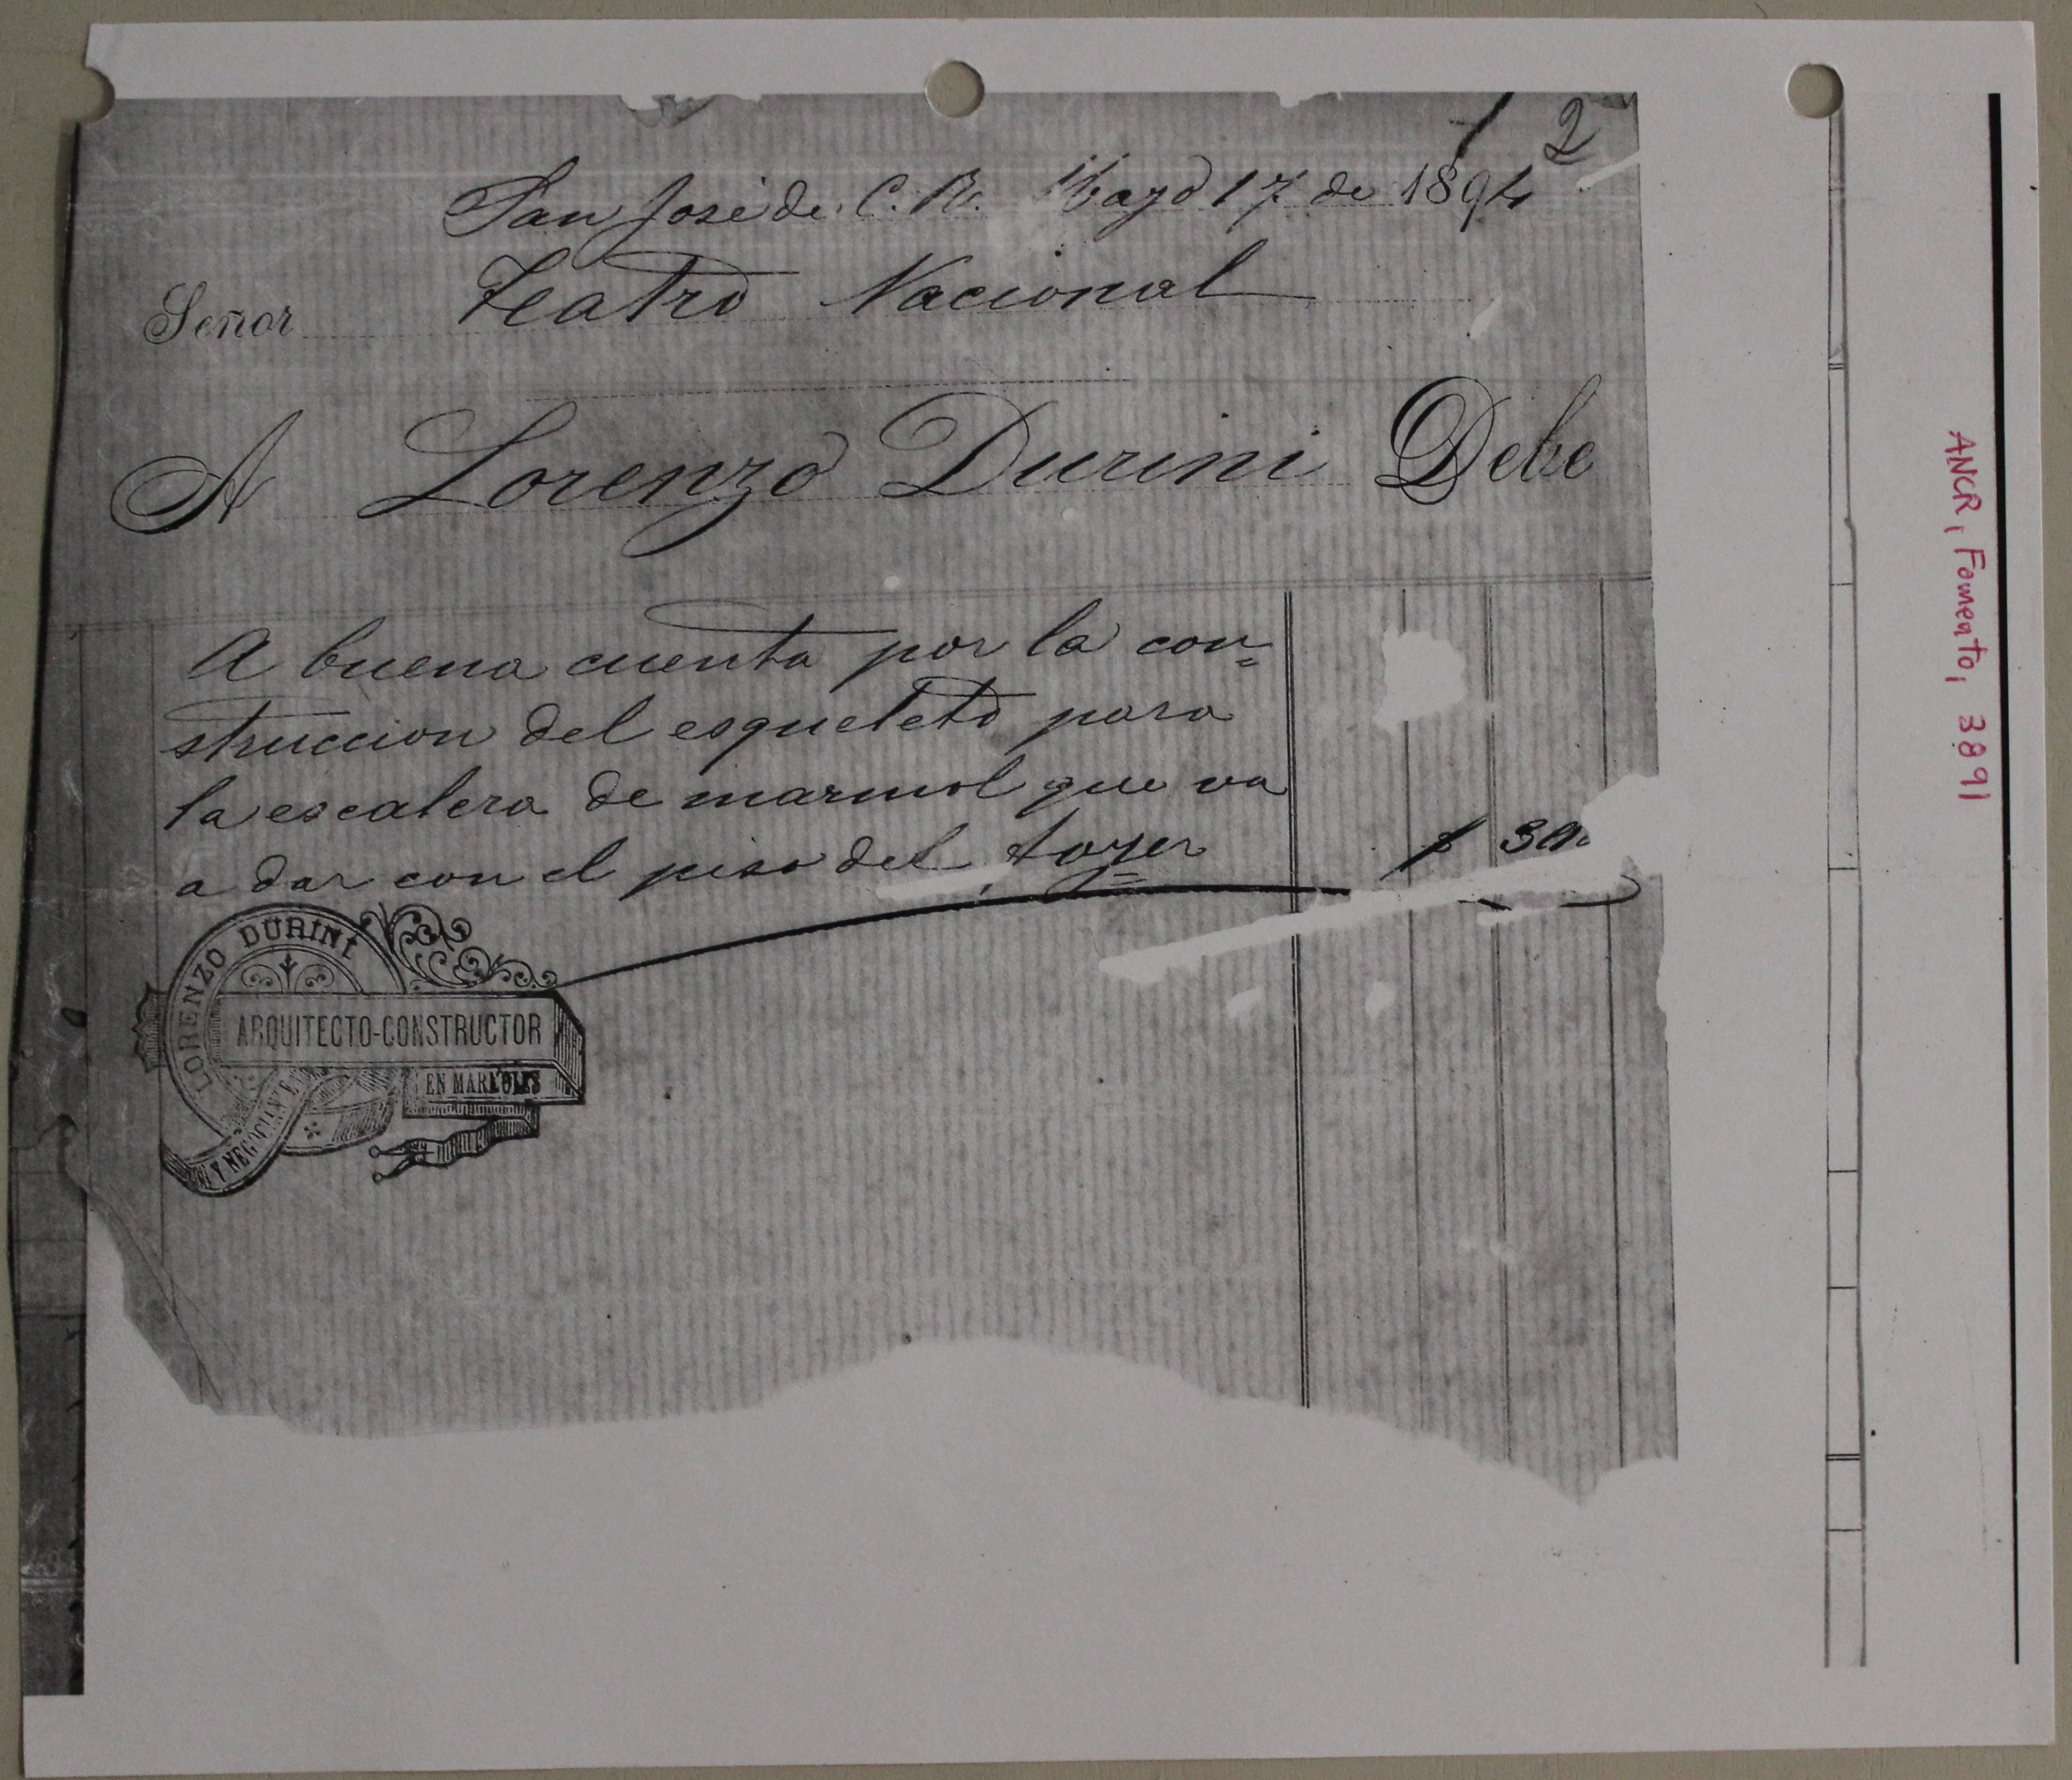 2
San José de C. R. Mayo 17 de 1894
Señor Teatro Nacional
A Lorenzo Durini Debe
A buena cuenta por la con=
struccion del esqueleto para
la escalera de marmol que va
a dar con el piso del foyer $ 30
LORENZO DURINI
ARQUITECTO-CONSTRUCTOR
Y NEGOCIANTE EN MARMOLES
ANCR, Fomento, 3891